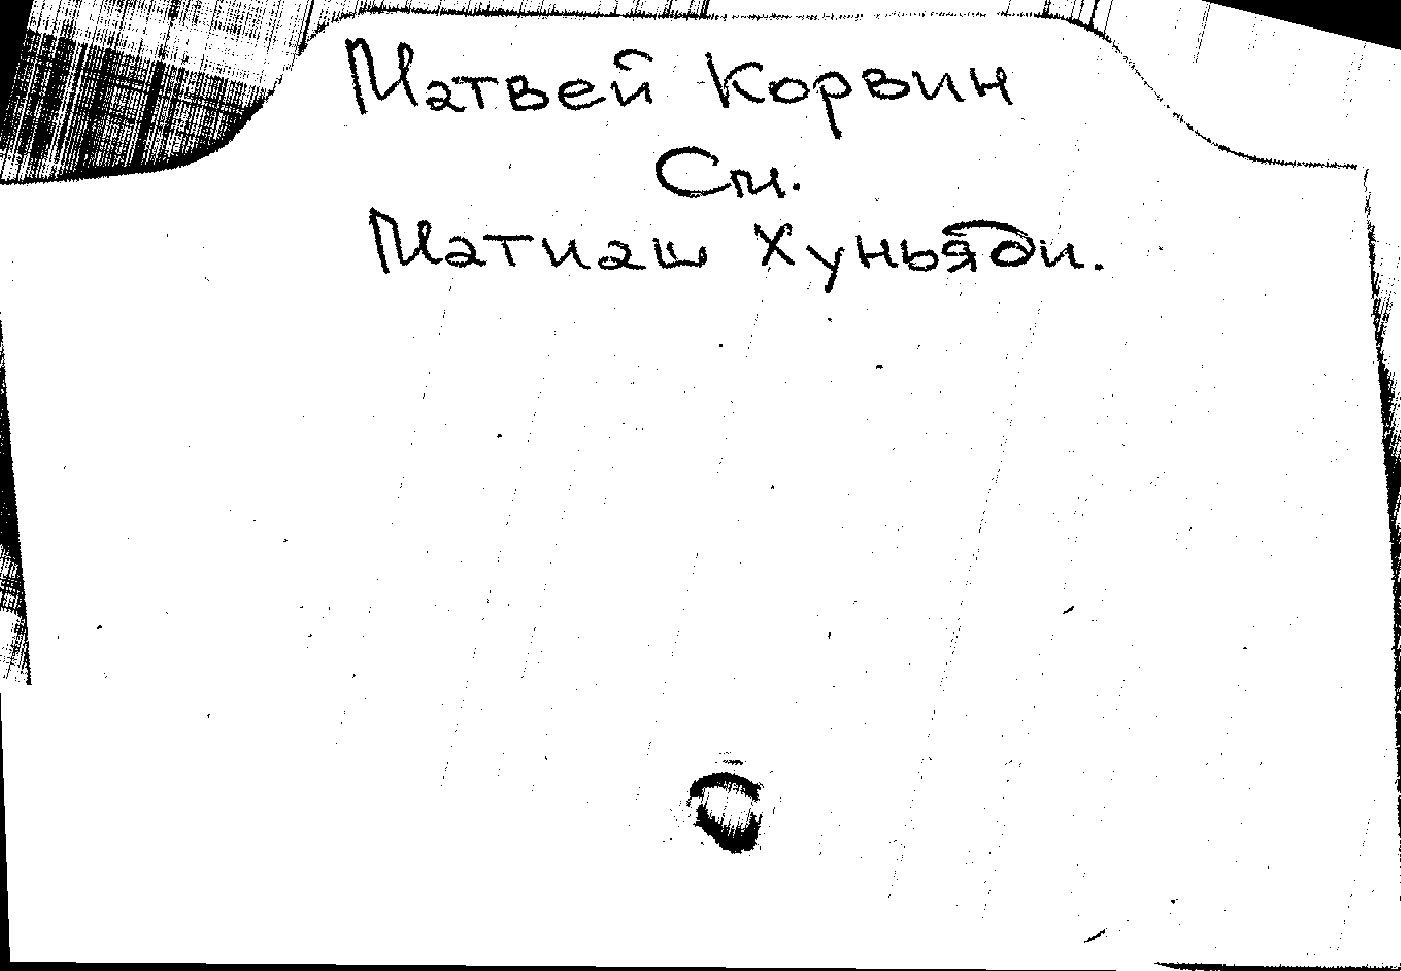 Матвей Корвин
См.
Матиаш Хуньяди.